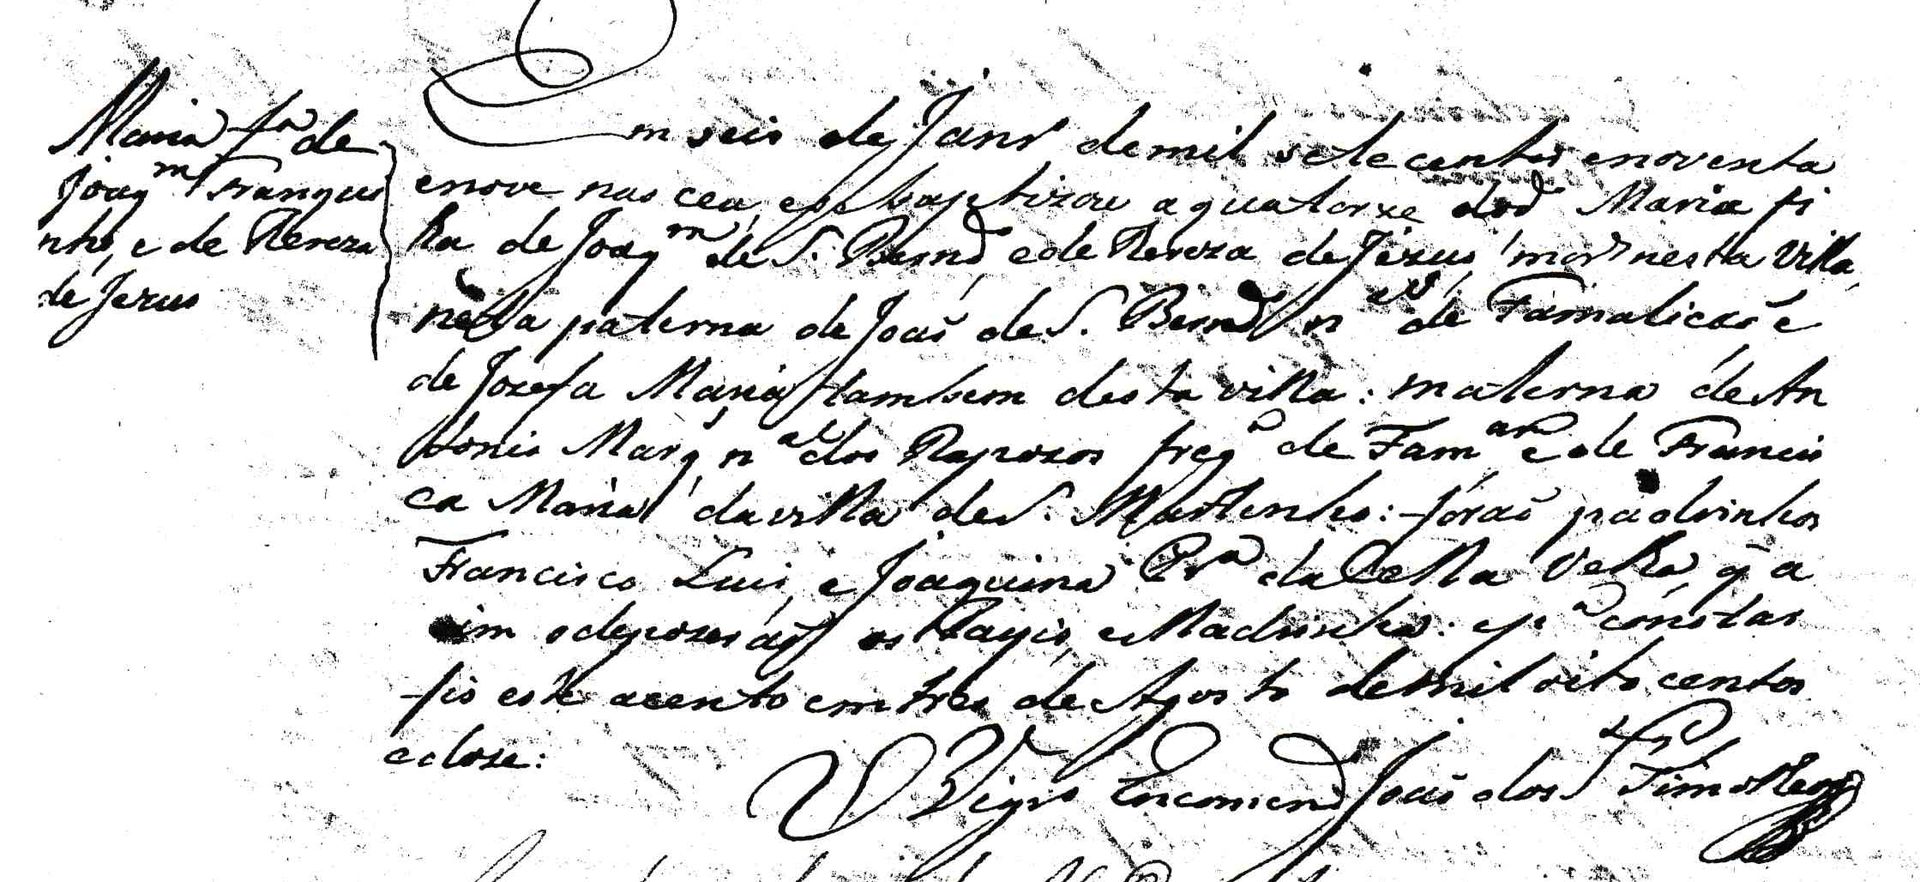 Maria f.ª de
Joaq.m Franqui
nho, e de Thereza
de Jezus
Em seis de Janr.º de mil sete centos e noventa
e nove nasceu, e se baptizou a quatorze do d.º Maria fi
lha de Joaq.m de S. Bernd.º, e de Thereza de Jezus, mor.es nesta Villa,
néta paterna de Joaõ de S. Bernd.º n.al de Famalicaõ e
de Jozefa Maria tambem desta villa: materna de An
tonio Marq. n.al dos Rapozos freg.ª de Fam.am e de Francis
ca Maria da villa de S. Martinho: foraõ padrinhos
Francisco Luis, e Joaquina Pr.ª da Cella Velha, q̃ a
sim o depozeraõ os Pays, e Madrinha: e p.ª constar
fis este acento em tres de Agosto de mil oito centos
e doze:
O Vigr.º Encomend.º Joaõ dos S.tos Timotheo